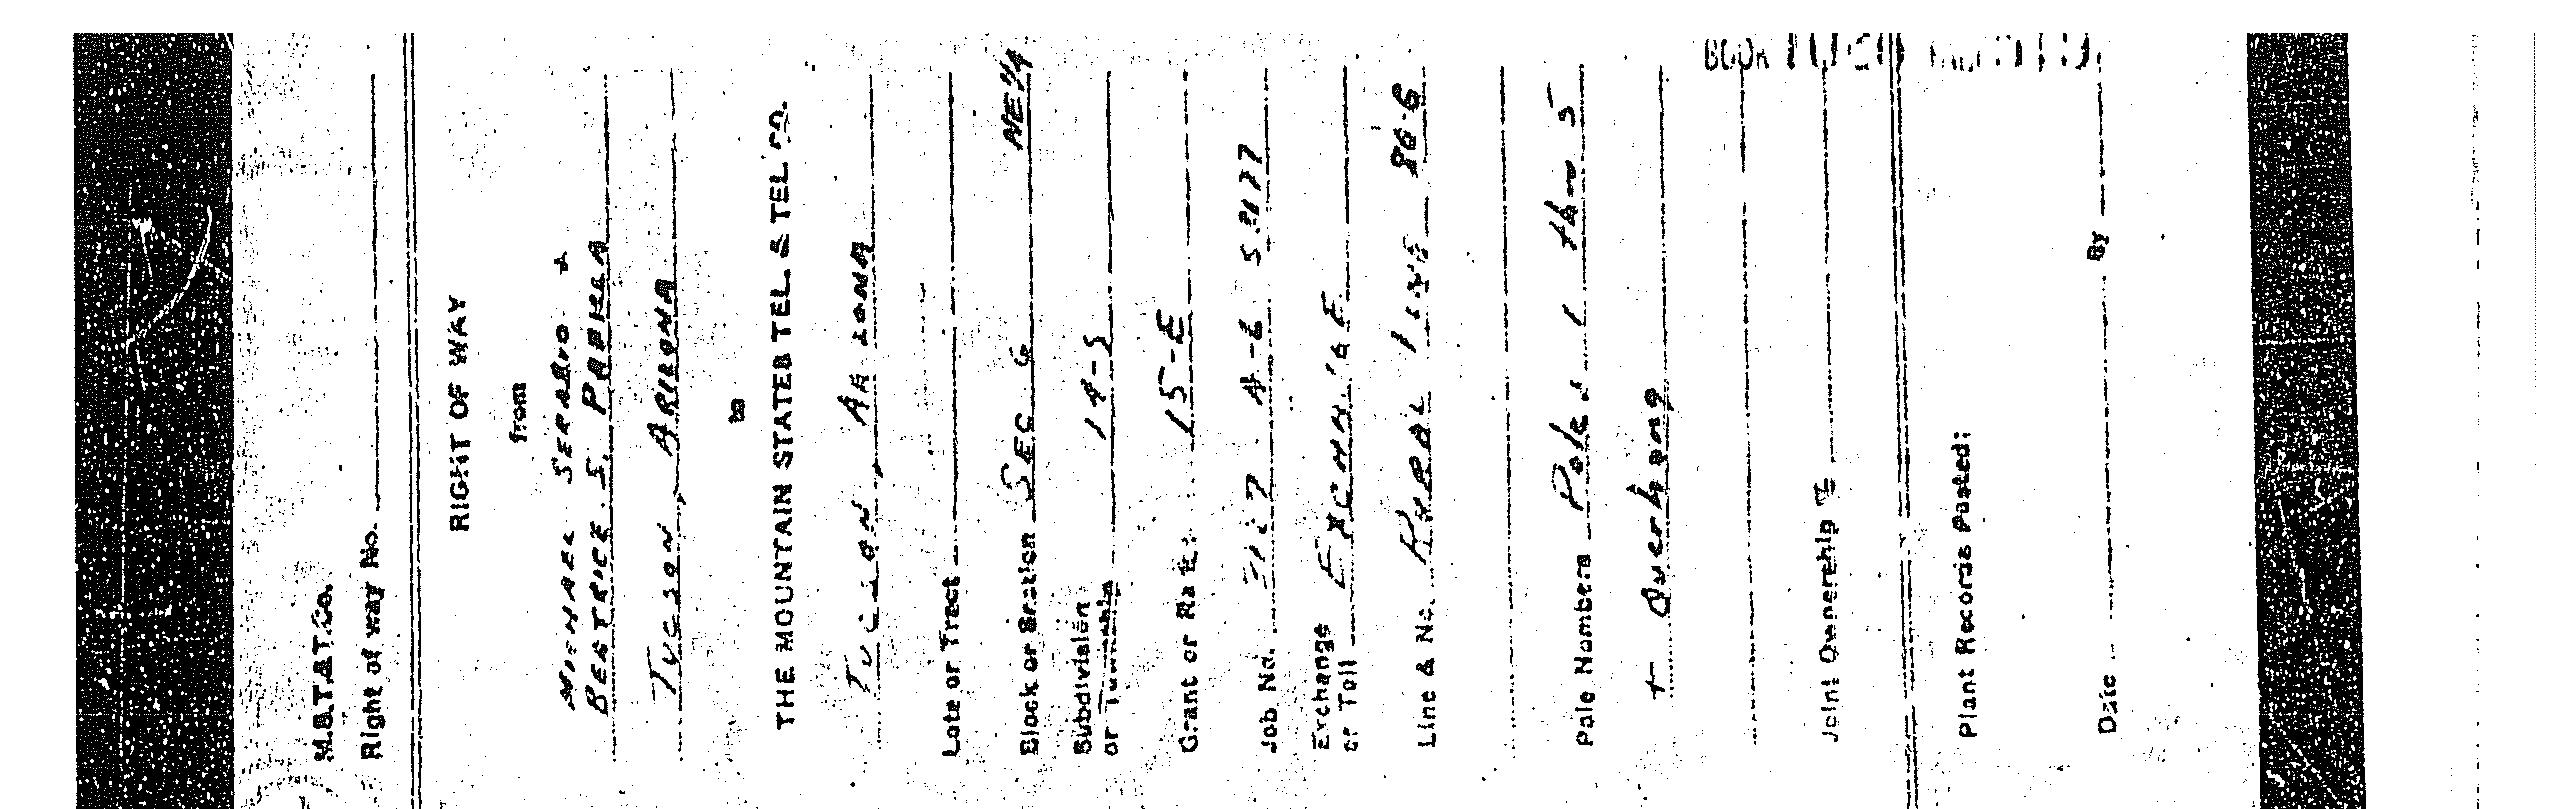 M.S.T.&T.Co.
Right of way No.
RIGHT OF WAY
from
MICHAEL SERRANO &
BEATRICE S. PADILLA
TUCSON, ARIZONA
to
THE MOUNTAIN STATES TEL. & TEL. CO.
TUCSON, ARIZONA
Lots or Tract
Block or Section SEC 6 NE 1/4
Subdivision
or Township 14-S
Grant or Range 15-E
Job No.
Exchange
or Toll
Line & No. RURAL LINE 86-6
Pole Numbers Poles 1 thru 5
+ Overhang
Joint Ownership %
Plant Records Posted:
Date By
BOOK